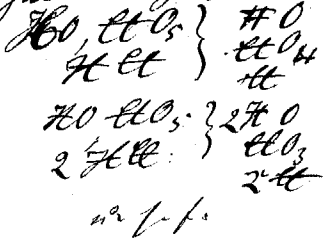 HO, ClO₅ } HO
H Cl ClO₄
Cl
HO ClO₅ } 2HO
2 HCl ClO₃
2 Cl